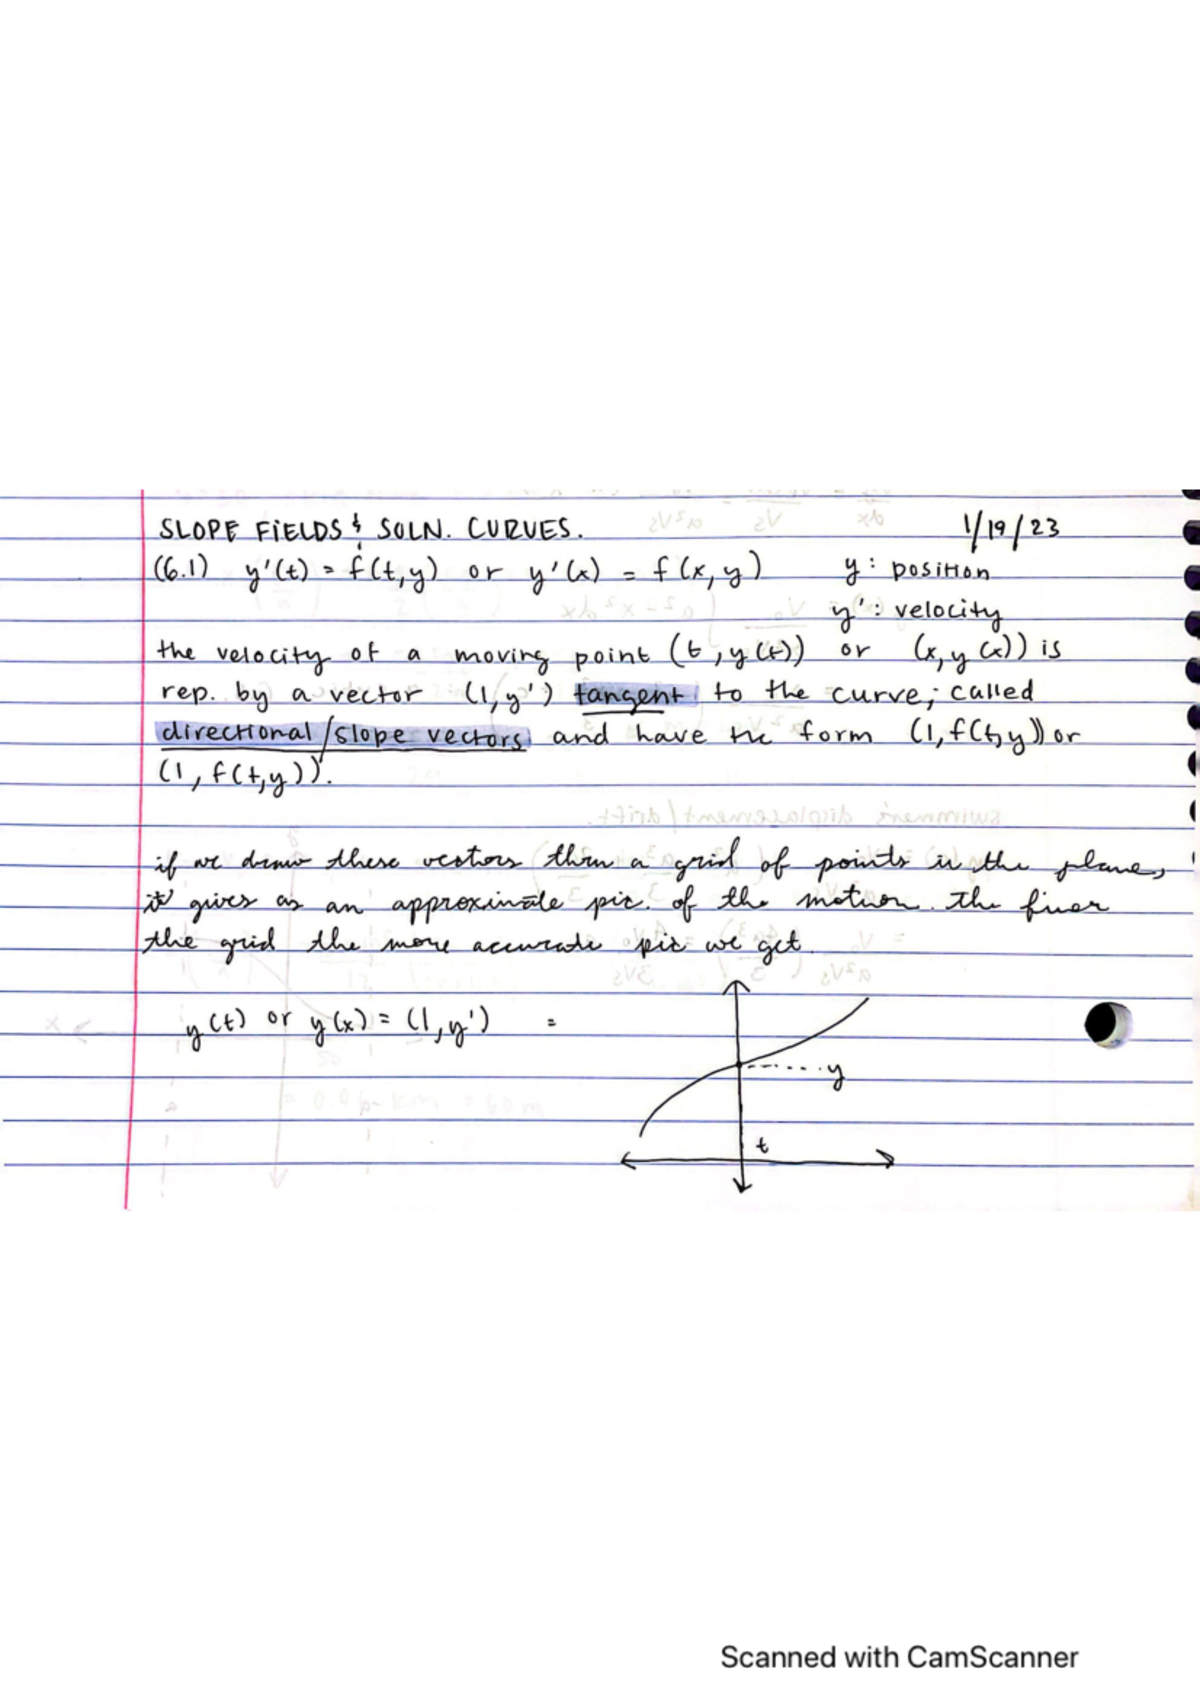 SLOPE FIELDS & SOLN. CURVES. 1/19/23
(6.1) y'(t) = f(t,y) or y'(x) = f(x,y) y: position
y': velocity
the velocity of a moving point (t,y(t)) or (x,y(x)) is
rep. by a vector (1,y') tangent to the curve; called
directional/slope vectors and have the form (1,f(t,y)) or
(1, f(t,y)).
if we draw these vectors thru a grid of points in the plane,
it gives us an approximate pic. of the motion. The finer
the grid the more accurate pic we get.
y(t) or y(x) = (1,y') =
y
t
Scanned with CamScanner